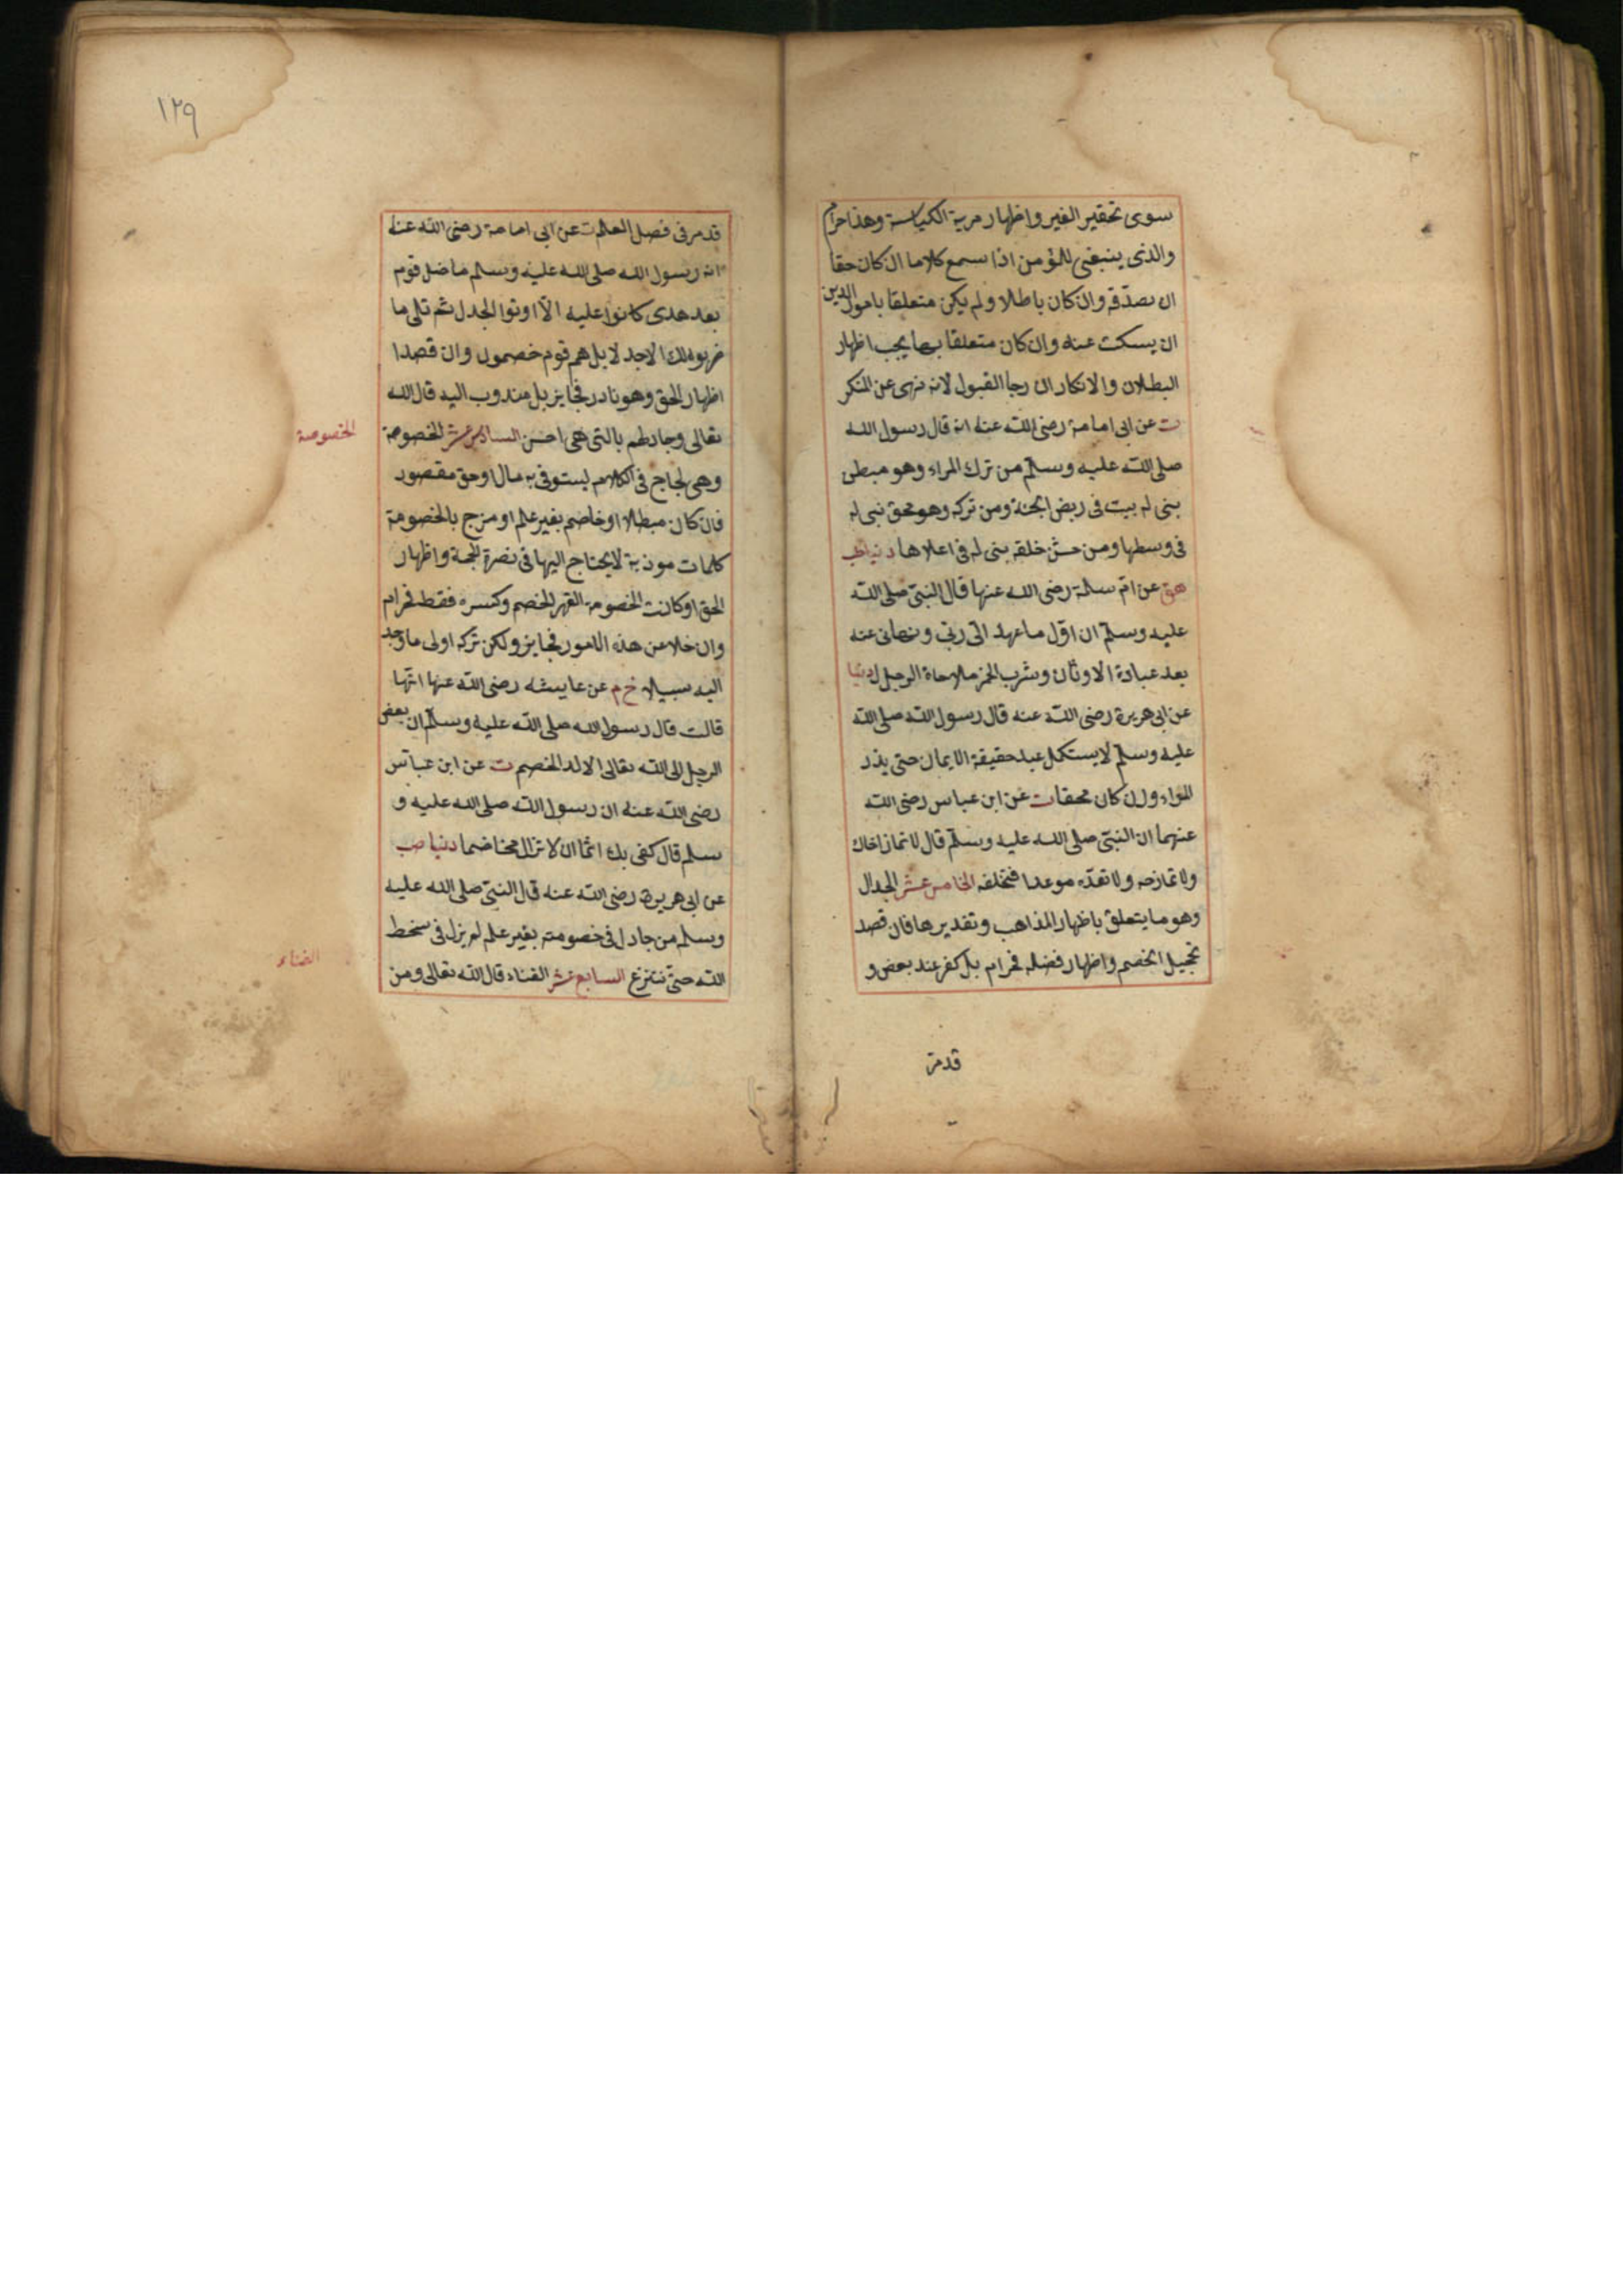 سوى تحقير الغير واظهار مزية الكياسة وهذا حرام
والذى ينبغى للمؤمن اذا سمع كلاما ان كان حقا
ان يصدّقه وان كان باطلا ولم يكن متعلقا بامور الدين
ان يسكت عنه وان كان متعلقا بها يجب اظهار
البطلان والانكار ان رجا القبول لانه نهى عن المنكر
ت عن ابى امامة رضى الله عنه انه قال رسول الله
صلى الله عليه وسلم من ترك المراء وهو مبطن
بنى له بيت فى ربض الجنة ومن تركه وهو محق بنى له
فى وسطها ومن حسن خلقه بنى له فى اعلاها دنيا طب
هق عن امّ سلمة رضى الله عنها قال النبىّ صلى الله
عليه وسلم ان اوّل ما عهد الىّ ربّى ونهانى عنه
بعد عبادة الاوثان وشرب الخمر ملاحاة الرجل دنيا
عن ابى هريرة رضى الله عنه قال رسول الله صلى الله
عليه وسلم لا يستكمل عبد حقيقة الايمان حتى يذر
المراء وان كان محقا ت عن ابن عباس رضى الله
عنهما ان النبىّ صلى الله عليه وسلم قال لا تمار اخاك
ولا تمازحه ولا تعده موعدا فتخلفه الخامس عشر الجدال
وهو ما يتعلق باظهار المذاهب وتقديرها فان قصد
تخجيل الخصم واظهار فضله فحرام بل كفر عند بعض و
قدمر
١٢٩
قدمر فى فصل العلم ت عن ابى امامة رضى الله عنه
ان رسول الله صلى الله عليه وسلم ما ضل قوم
بعد هدى كانوا عليه الّا اوتوا الجدل ثم تلى ما
ضربوه لك الا جدلا بل هم قوم خصمون وان قصدا
اظهار الحق وهو نادر فجايز بل مندوب اليه قال الله
تعالى وجادلهم بالتى هى احسن السادس عشر الخصومة
الخصومة
وهى لجاج فى الكلام ليستوفى به مال او حق مقصود
فان كان مبطلا او خاصم بغير علم او مزج بالخصومة
كلمات موذية لا يحتاج اليها فى نصرة الحجة واظهار
الحق او كانت الخصومة القهر الخصم وكسره فقط فحرام
وان خلا عن هذه الامور فجايز ولكن تركه اولى ما وجد
اليه سبيلا خ م عن عايشه رضى الله عنها انّها
قالت قال رسول الله صلى الله عليه وسلم ان بعض
الرجل الى الله تعالى الالد الخصم ت عن ابن عباس
رضى الله عنه ان رسول الله صلى الله عليه و
سلم قال كفى بك اثما ان لا تزال مخاصما دنيا صب
عن ابى هريرة رضى الله عنه قال النبىّ صلى الله عليه
وسلم من جادل فى خصومته بغير علم لم يزل فى سخط
الله حتىّ ينزع السابع عشر الغناء قال الله تعالى ومن
الغناء